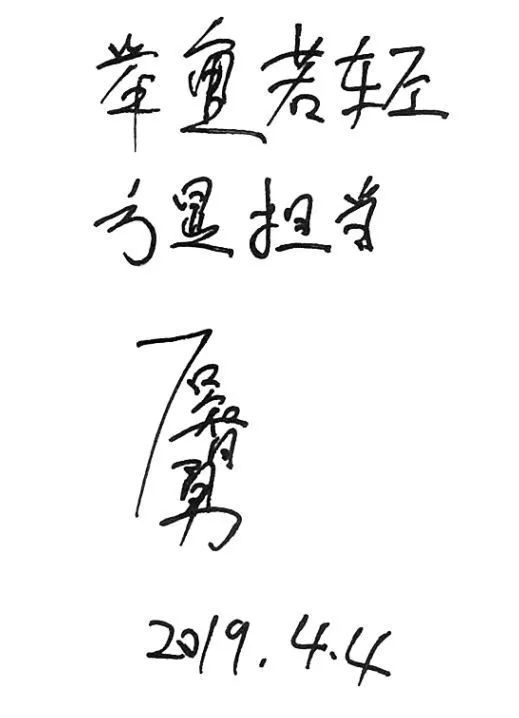 举重若轻
方显担当
2019.4.4